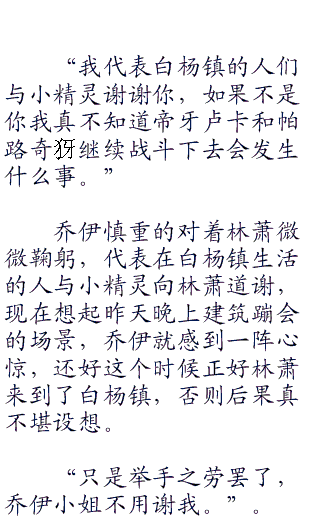 “我代表白杨镇的人们
与小精灵谢谢你，如果不是
你我真不知道帝牙卢卡和帕
路奇犽继续战斗下去会发生
什么事。”
乔伊慎重的对着林萧微
微鞠躬，代表在白杨镇生活
的人与小精灵向林萧道谢，
现在想起昨天晚上建筑蹦会
的场景，乔伊就感到一阵心
惊，还好这个时候正好林萧
来到了白杨镇，否则后果真
不堪设想。
“只是举手之劳罢了，
乔伊小姐不用谢我。”。